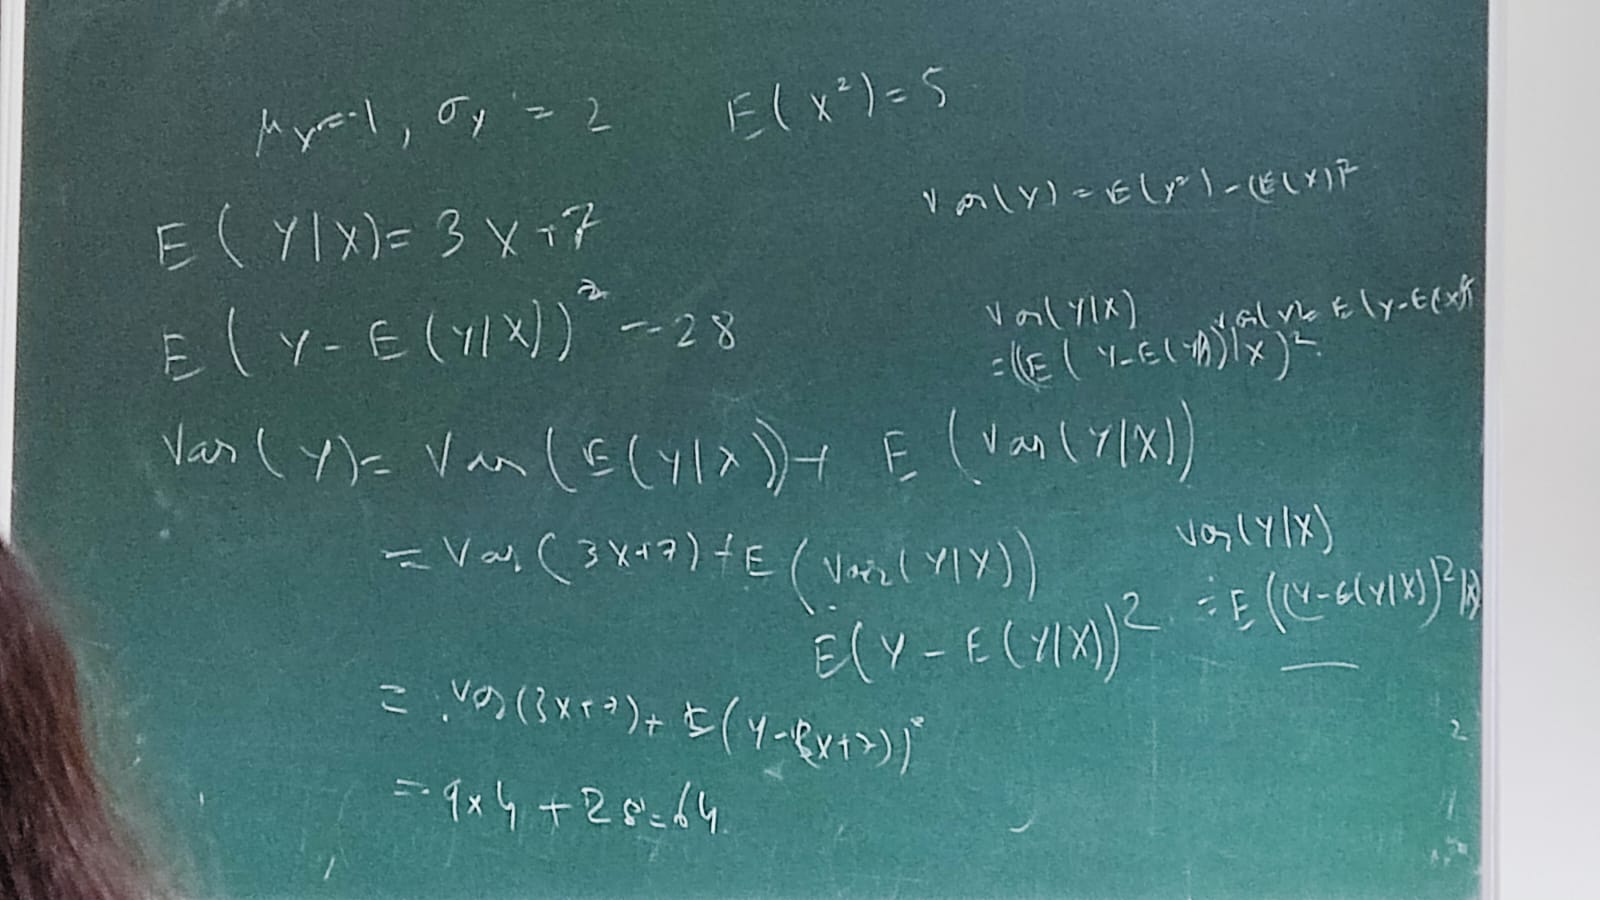 μ_X=-1, σ_y = 2 E(X²)=5
Var(Y) = E(Y²) - (E(X))²
E(Y|X)= 3X+7
E(Y-E(Y|X))² = 28
Var(Y|X)
Var(Y)= E(Y-E(X))²
=((E(Y-E(Y))|X)².
Var(Y)= Var(E(Y|X))+ E(Var(Y|X))
= Var(3X+7)+E(Var(Y|X))
Var(Y|X)
= E((Y-E(Y|X))²|X)
E(Y-E(Y|X))²
= Var(3X+7)+ E(Y-(3X+7))²
= 9x4+28=64.